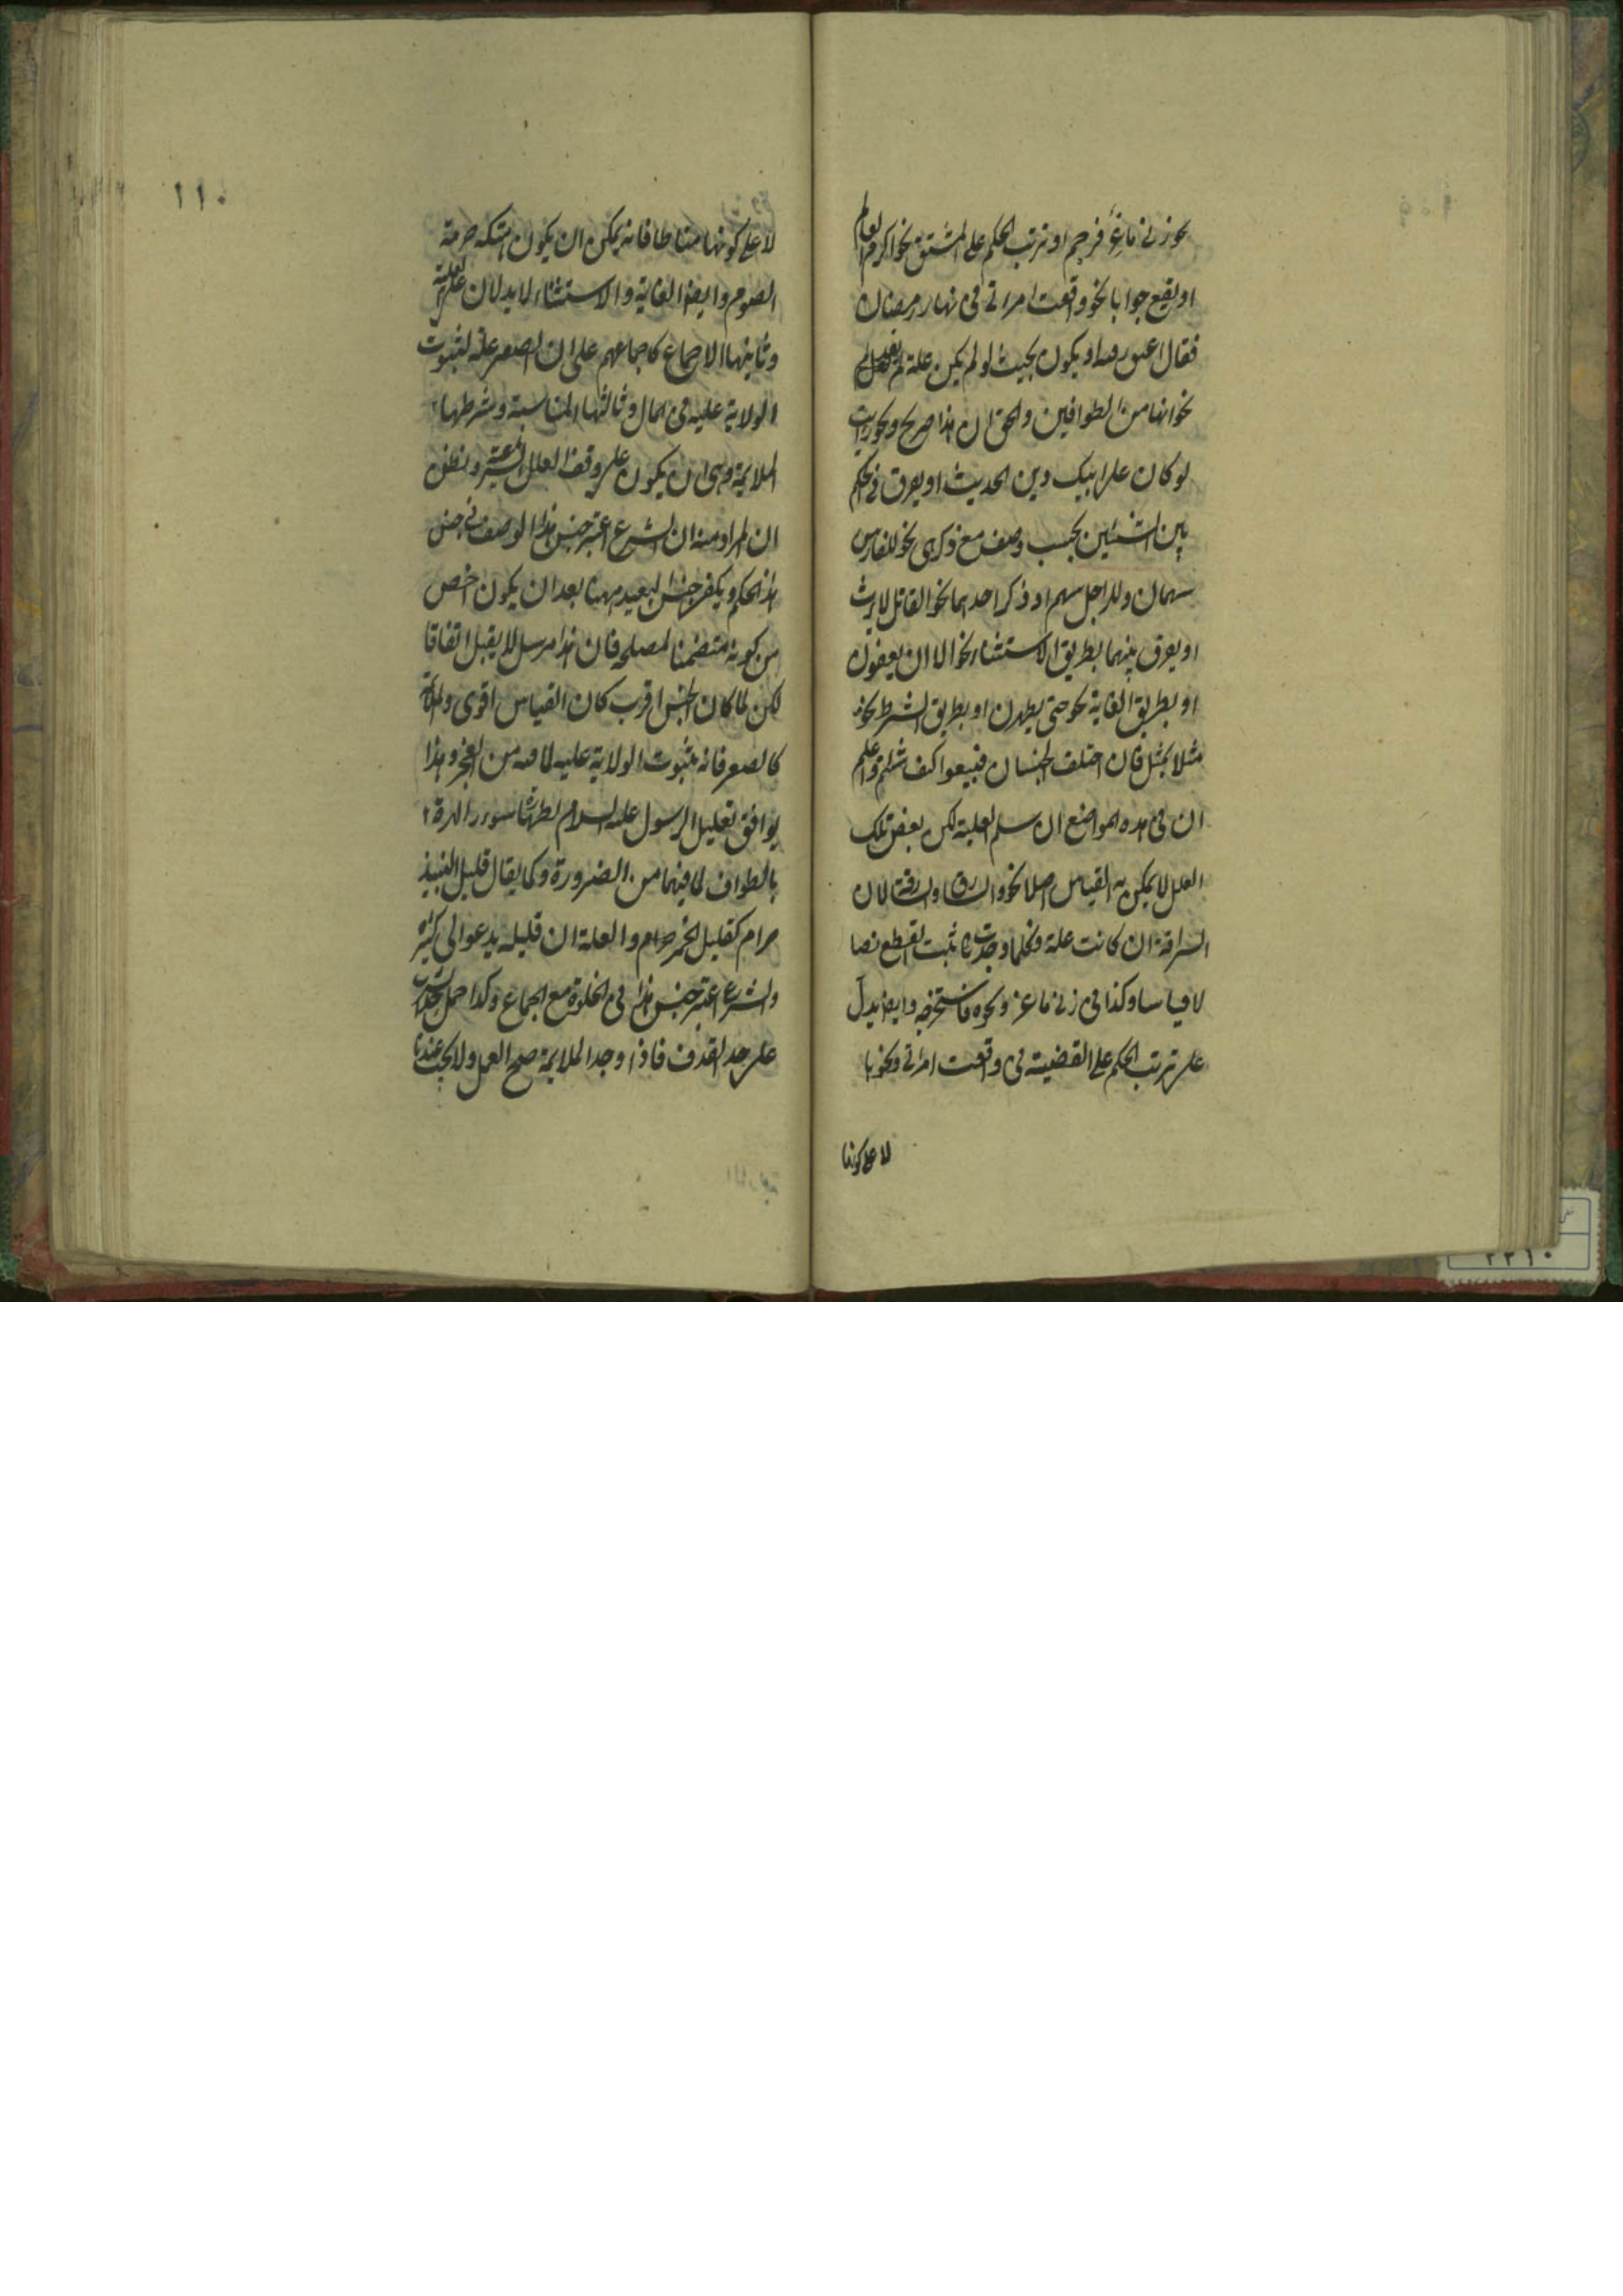 نحو زنى ماعز فرجم او ترتب الحكم على المشتق نحو اكرم العالم
او يقع جوابا نحو واقعت امراتي في نهار رمضان
فقال اعتق رقبة او يكون بحيث لو لم يكن علة لم يفد
نحو انها من الطوافين والحق ان هذا صريح ونحو ارايت
لو كان على ابيك دين الحديث او يفرق في الحكم
بين الشيئين بحسب وصف مع ذكرهما نحو للفارس
سهمان وللراجل سهم او ذكر احدهما نحو القاتل لا يرث
او يفرق بينهما بطريق الاستثناء نحو الا ان يعفون
او بطريق الغاية نحو حتى يطهرن او بطريق الشرط نحو
مثلا بمثل فان اختلف الجنسان فبيعوا كيف شئتم واعلم
ان في هذه المواضع ان سلم العلية لكن بعض تلك
العلل لا يمكن به القياس اصلا نحو السارق والسارقة لان
السرقة ان كانت علة فكلما وجدت يثبت القطع نصا
لا قياسا وكذا في زنى ماعز ونحوه فاستخرجه وايضا يدل
على ترتب الحكم على القضية في واقعت امراتي ونحوها
لا على كونها
١١٠
لا على كونها مناطا فانه يمكن ان يكون هتك حرمة
الصوم وايضا الغاية والاستثناء لا يدلان على العلية
وثانيها الاجماع كاجماعهم على ان الصغر علة لثبوت
الولاية عليه في المال وثالثها المناسبة وشرطها
الملايمة وهي ان يكون على وفق العلل الشرعية واظن
ان المراد منه ان الشرع اعتبر جنس هذا الوصف في جنس
هذا الحكم ويكفي الجنس البعيد ههنا بعد ان يكون اخص
من كونه متضمنا لمصلحة فان هذا مرسل لا يقبل اتفاقا
لكن كلما كان الجنس اقرب كان القياس اقوى والملايم
كالصغر فانه لثبوت الولاية عليه لما فيه من العجز وهذا
يوافق تعليل الرسول عليه السلام لطهارة سور الهرة
بالطواف لما فيهما من الضرورة وكما يقال قليل النبيذ
حرام كقليل الخمر حرام والعلة ان قليله يدعو الى كثيره
والشرع اعتبر جنس هذا في الخلوة مع الجماع وكذا حمل حد الشرب
على حد القذف فاذا وجد الملايمة صح العمل ولا يجب عندنا